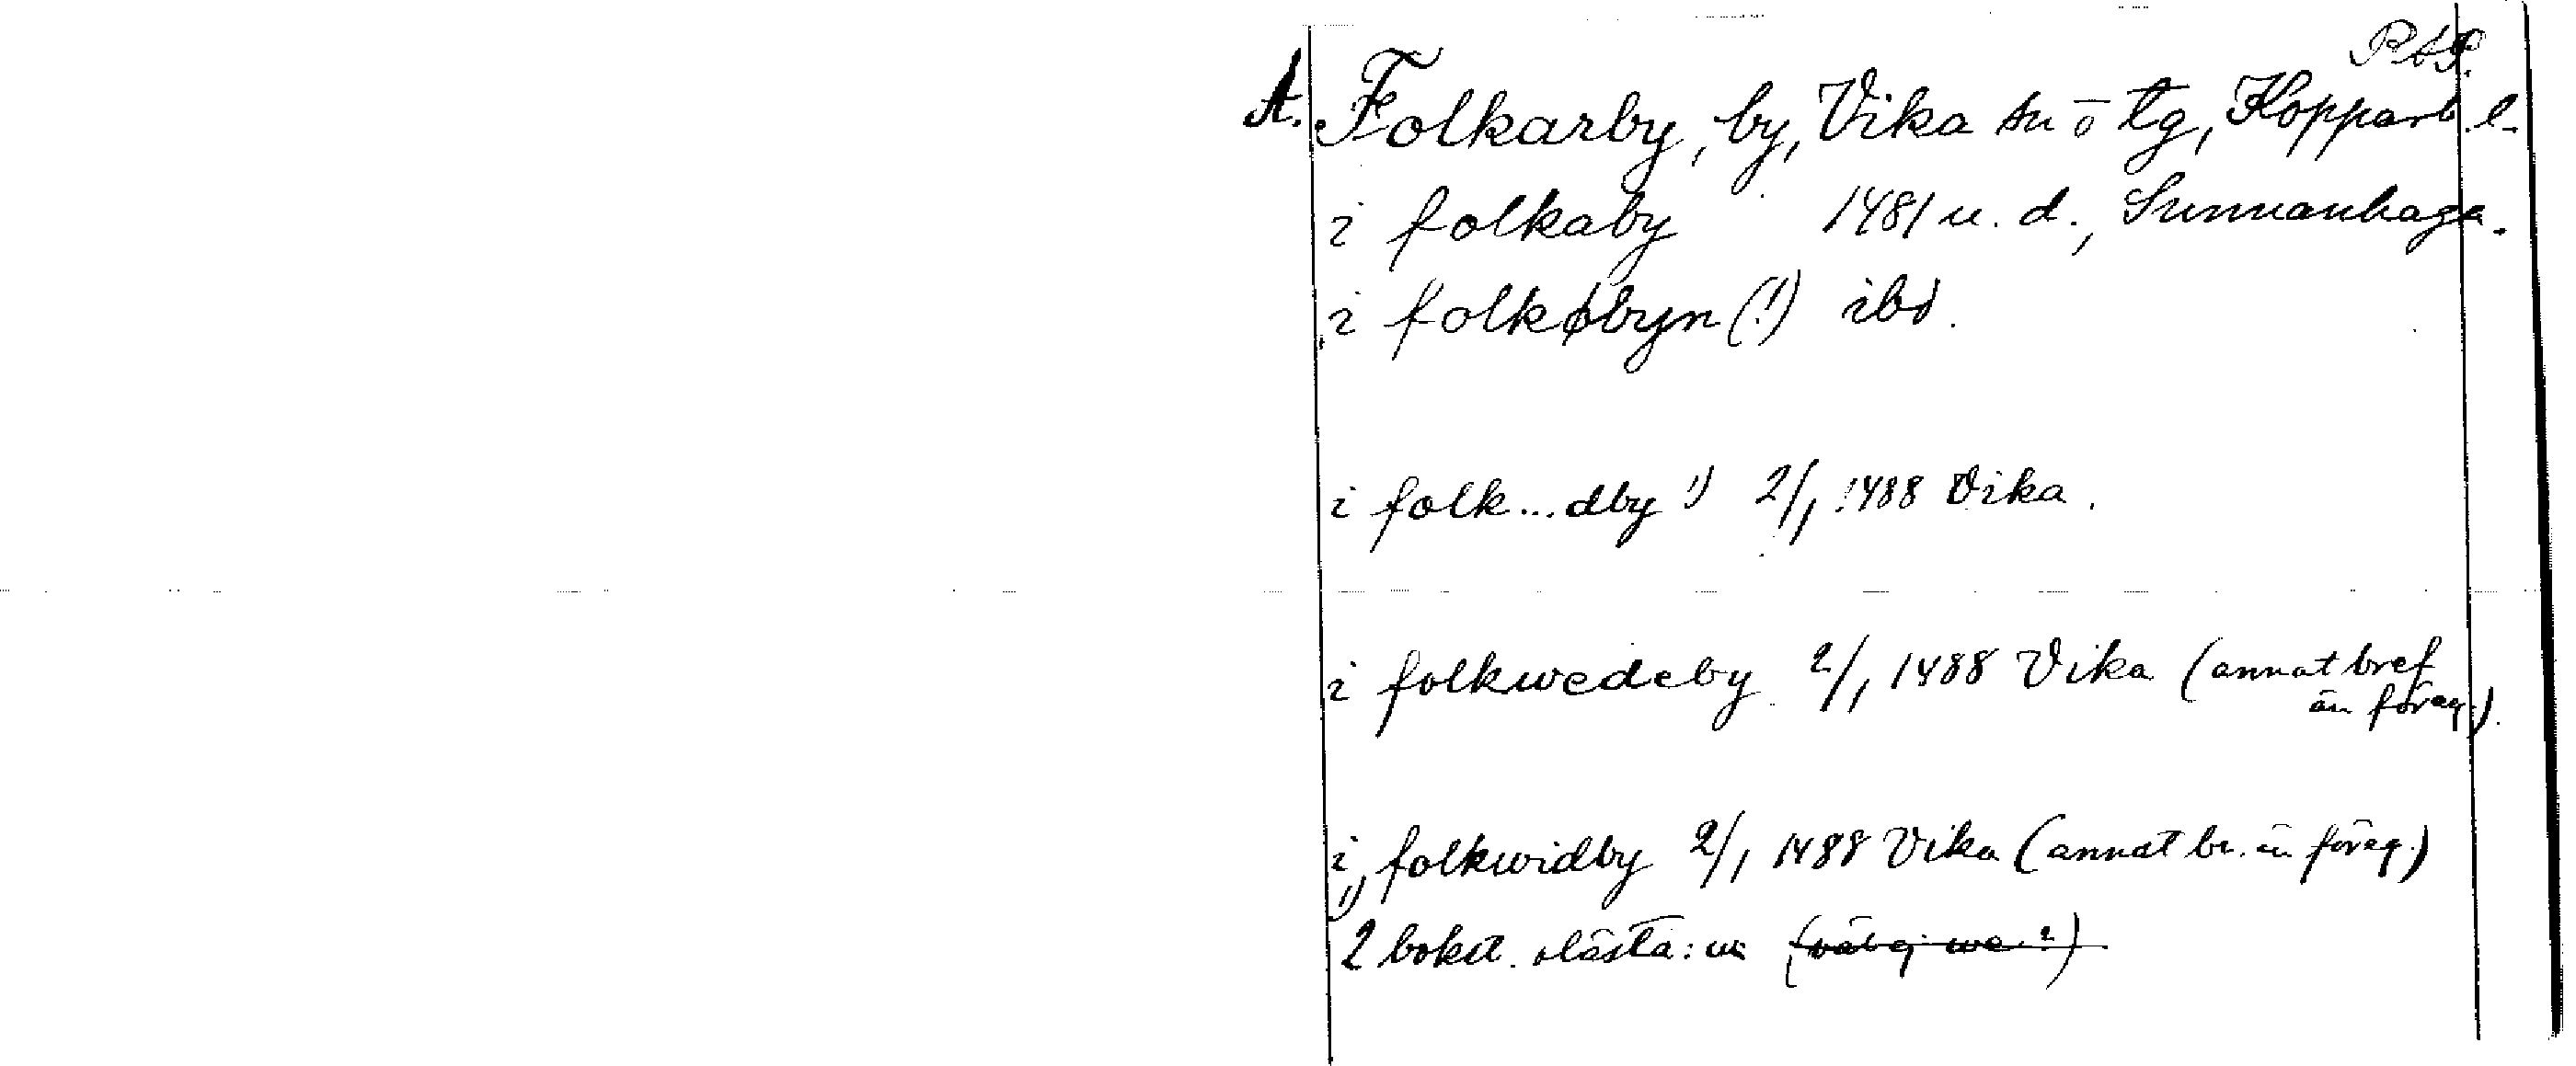 A. Folkarby, by, Vika sn o tg, Kopparb. l.
i folkaby 1481 u. d., Sunnanhaga.
i folkøbyn (!) ibd.
i folk...dby ¹) 2/1 1488 Vika.
i folkwedeby 2/1 1488 Vika (annat bref
än föreg.).
i folkwidby 2/1 1488 Vika (annat br. än föreg.)
¹)
2 bokst. olästa: